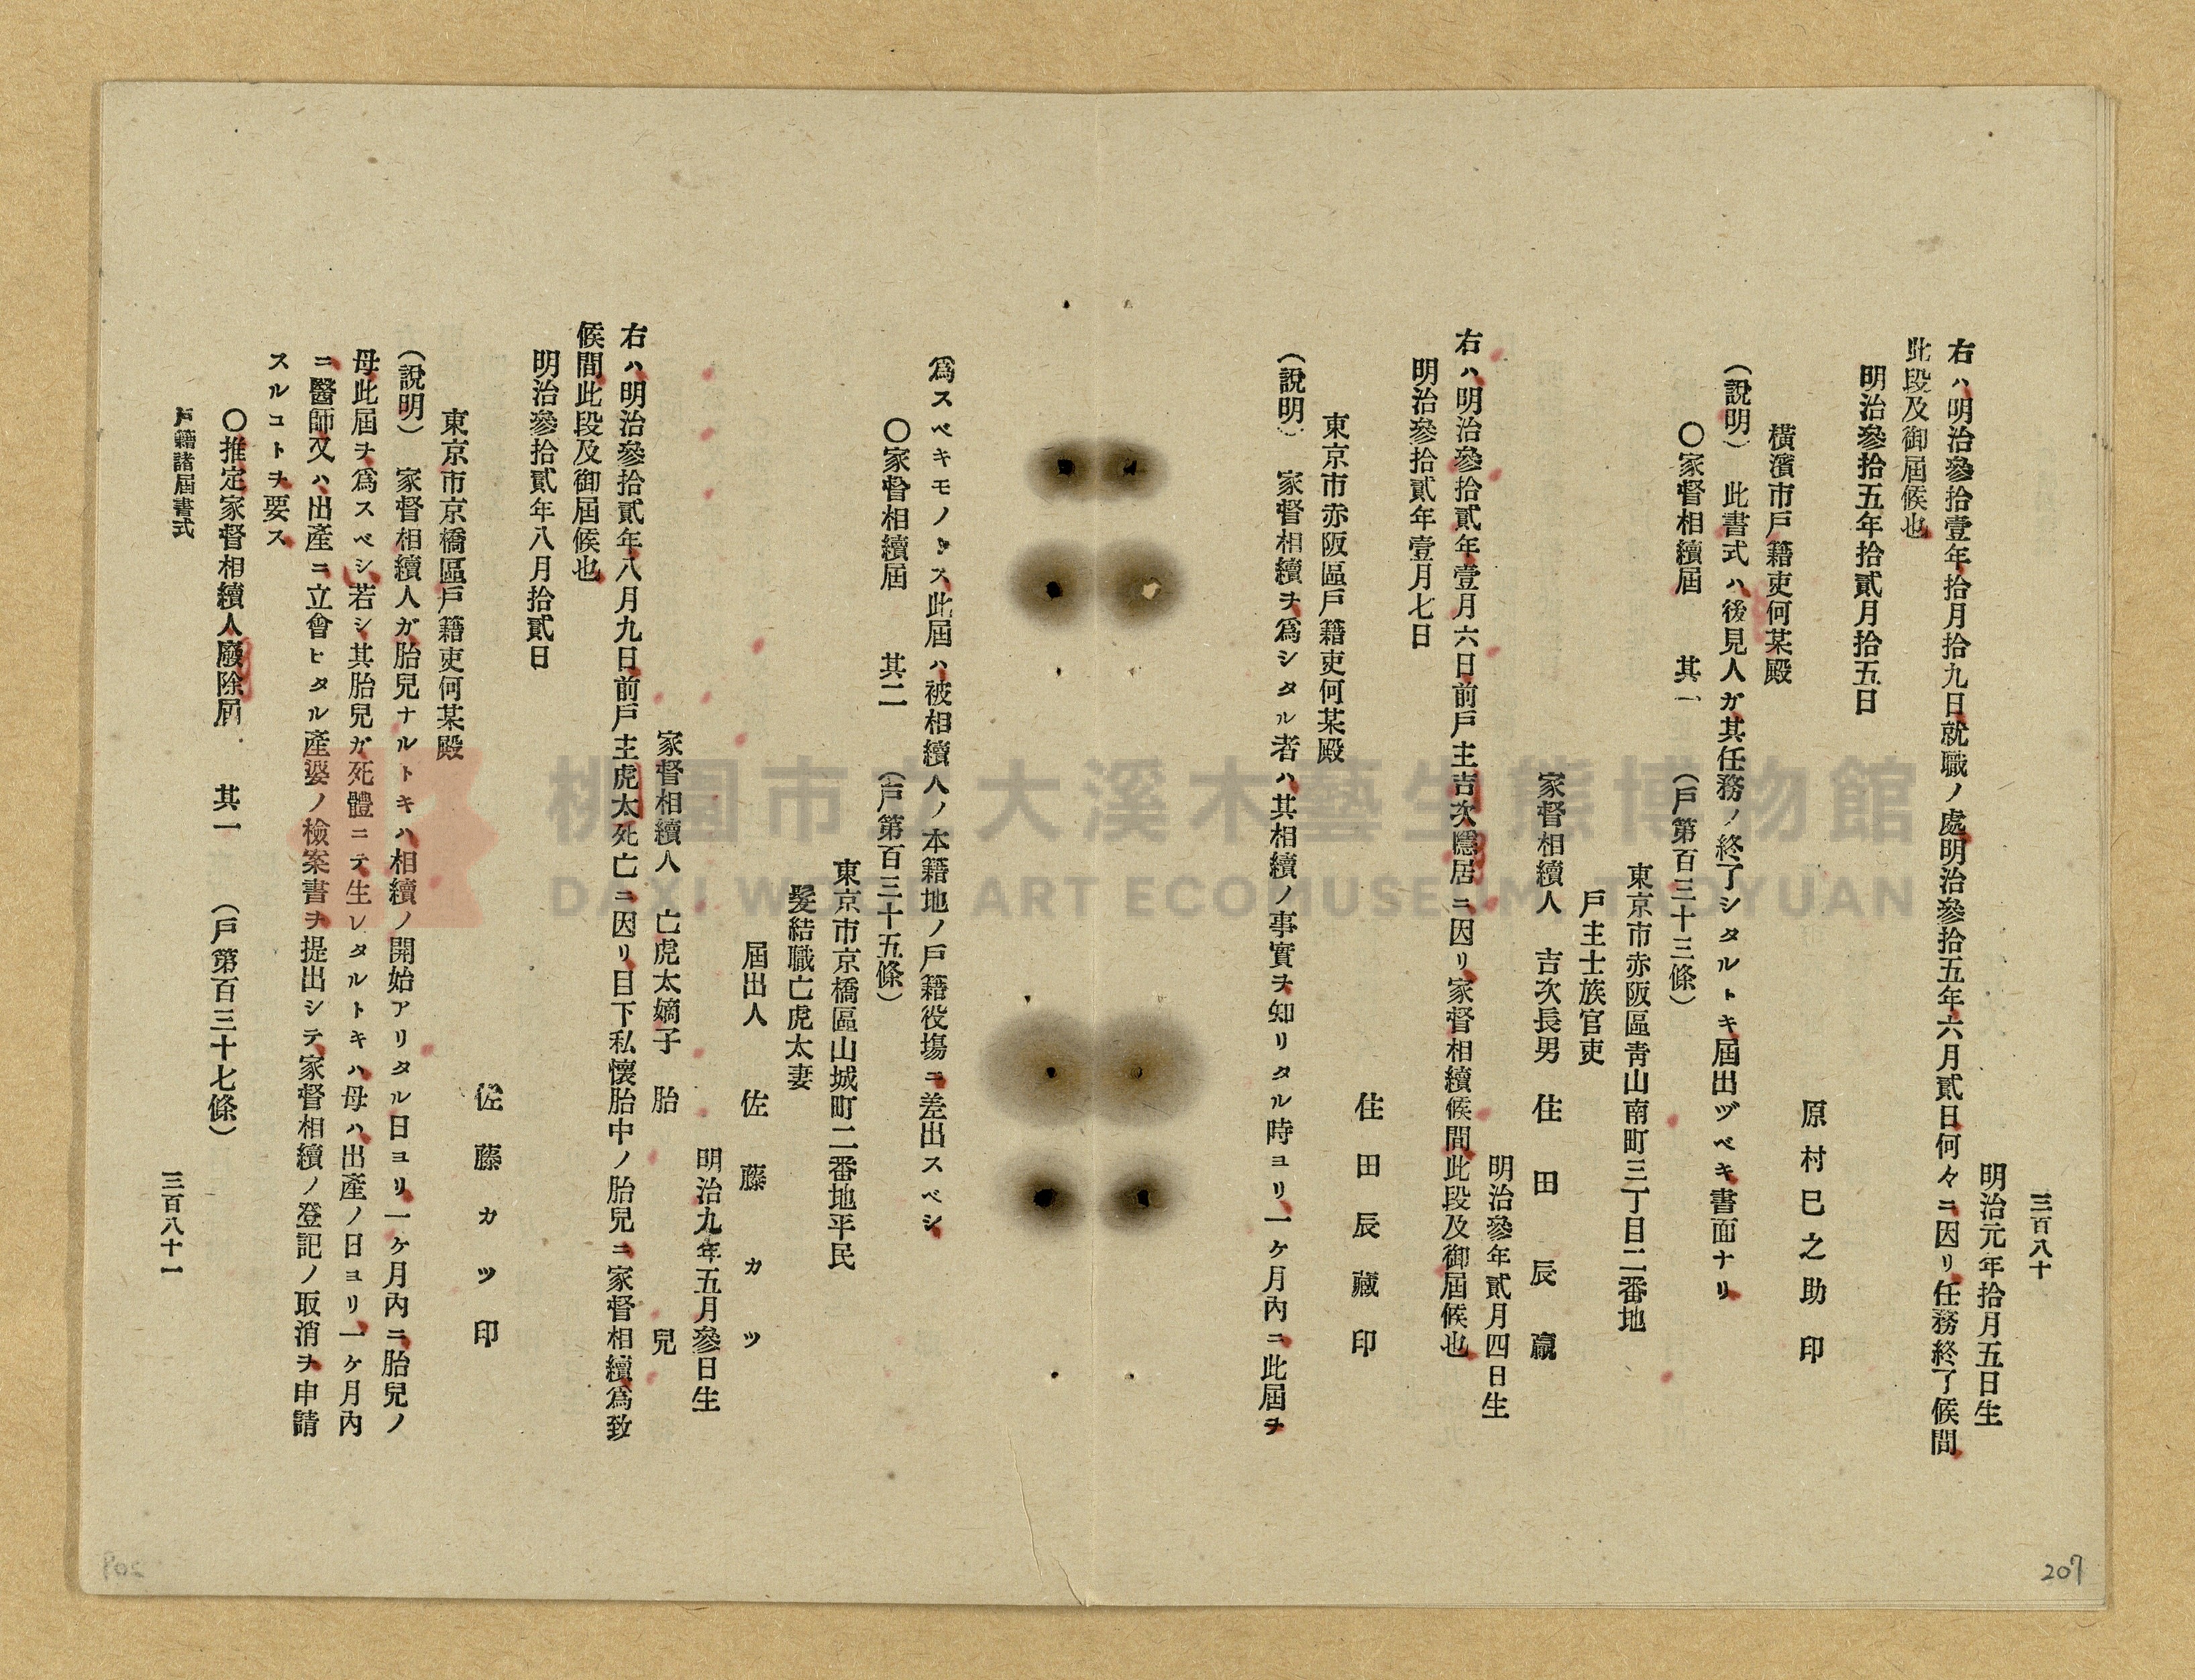 三百八十
明治元年拾月五日生
右ハ明治參拾壹年拾月拾九日就職ノ處明治參拾五年六月貳日何々ニ因リ任務終了候間
此段及御屆候也
明治參拾五年拾貳月拾五日
原村巳之助印
橫濱市戶籍吏何某殿
(說明) 此書式ハ後見人ガ其任務ノ終了シタルトキ屆出ヅベキ書面ナリ
〇家督相續屆 其一 (戶第百三十三條)
東京市赤阪區靑山南町三丁目二番地
戶主士族官吏
家督相續人 吉次長男 住田辰藏
明治參年貳月四日生
右ハ明治參拾貳年壹月六日前戶主吉次隱居ニ因リ家督相續候間此段及御屆候也
明治參拾貳年壹月七日
住田辰藏印
東京市赤阪區戶籍吏何某殿
(說明) 家督相續ヲ爲シタル者ハ其相續ノ事實ヲ知リタル時ヨリ一ケ月內ニ此屆ヲ
爲スベキモノトス此屆ハ被相續人ノ本籍地ノ戶籍役塲ニ差出スベシ
〇家督相續屆 其二 (戶第百三十五條)
東京市京橋區山城町二番地平民
髮結職亡虎太妻
屆出人 佐藤カツ
明治九年五月參日生
家督相續人 亡虎太嫡子 胎兒
右ハ明治參拾貳年八月九日前戶主虎太死亡ニ因リ目下私懷胎中ノ胎兒ニ家督相續爲致
候間此段及御屆候也
明治參拾貳年八月拾貳日
佐藤カツ印
東京市京橋區戶籍吏何某殿
(說明) 家督相續人ガ胎兒ナルトキハ相續ノ開始アリタル日ヨリ一ケ月內ニ胎兒ノ
母此屆ヲ爲スベシ若シ其胎兒ガ死體ニテ生レタルトキハ母ハ出產ノ日ヨリ一ケ月內
ニ醫師又ハ出產ニ立會ヒタル產婆ノ檢案書ヲ提出シテ家督相續ノ登記ノ取消ヲ申請
スルコトヲ要ス
〇推定家督相續人廢除屆 其一 (戶第百三十七條)
戶籍諸屆書式
三百八十一
207
桃園市立大溪木藝生態博物館
DAXI WOOD ART ECOMUSEUM, TAOYUAN